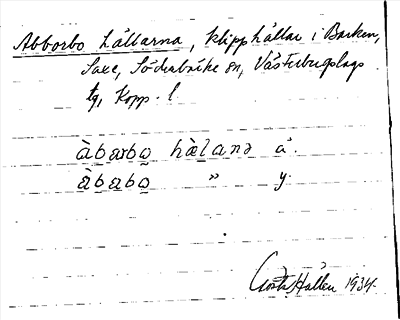 Abborbo hällarna, klipphällar i Barken,
Saxe, Söderbärke sn, Västerbergslags
tg, Kopp. l
àbɑrbo hæ̀lanə ä.
àbɑbo " y.
Gösta Hallén 1934.